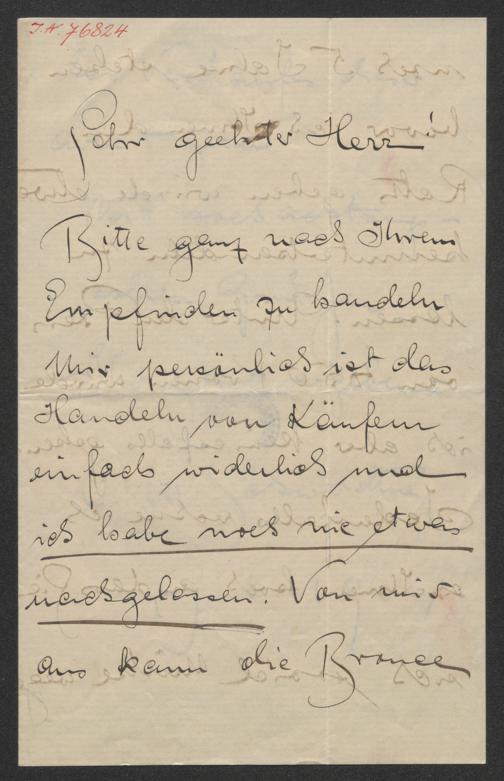 I.N. 76824
Sehr geehrter Herr!
Bitte ganz nach Ihrem
Empfinden zu handeln
Mir persönlich ist das
Handeln von Käufern
einfach widerlich und
ich habe noch nie etwas
nachgelassen. Von mir
aus kann die Bronce